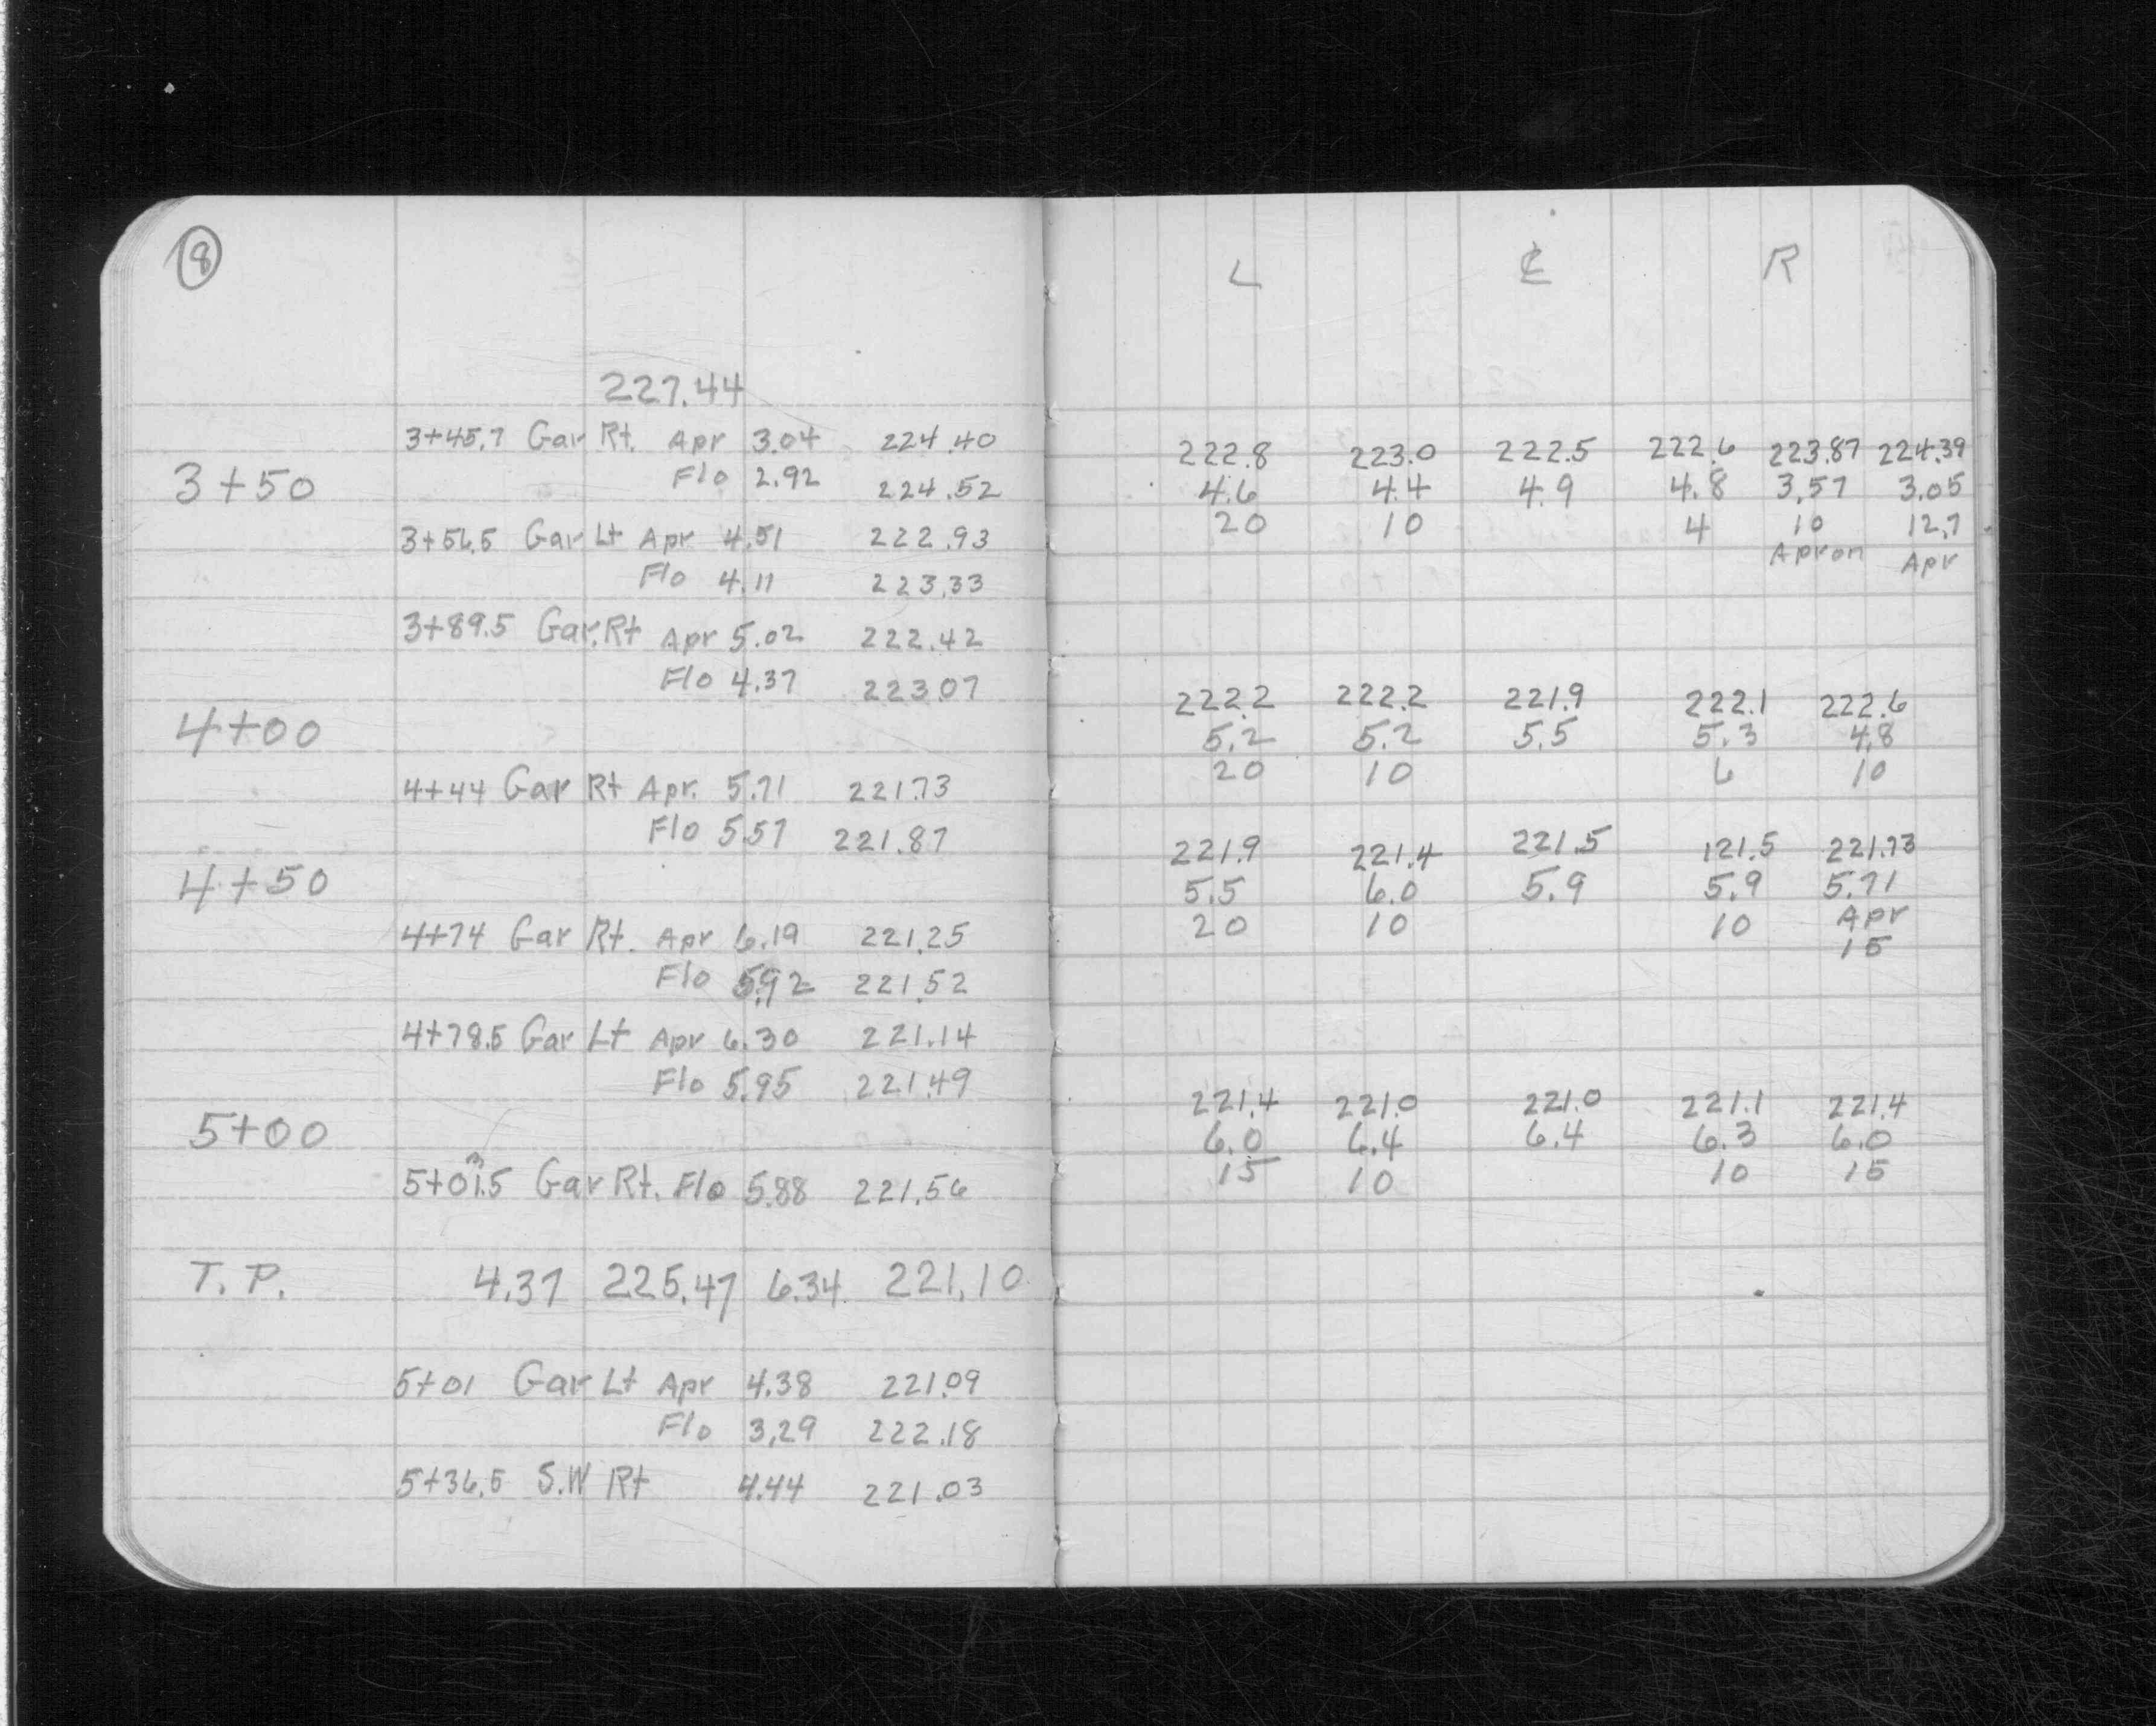 8
227.44
3+45.7 Gar Rt. Apr 3.04 224.40
3+50 Flo 2.92 224.52
3+56.5 Gar Lt Apr 4.51 222.93
Flo 4.11 223.33
3+89.5 Gar. Rt Apr 5.02 222.42
Flo 4.37 223.07
4+00
4+44 Gar Rt Apr. 5.71 221.73
Flo 5.57 221.87
4+50
4+74 Gar Rt. Apr 6.19 221.25
Flo 5.92 221.52
4+78.5 Gar Lt Apr 6.30 221.14
Flo 5.95 221.49
5+00
5+01.5 Gar Rt. Flo 5.88 221.56
T.P. 4.37 225.47 6.34 221.10
5+01 Gar Lt Apr 4.38 221.09
Flo 3.29 222.18
5+36.5 S.W Rt 4.44 221.03
L ℄ R
222.8 223.0 222.5 222.6 223.87 224.39
4.6 4.4 4.9 4.8 3.57 3.05
20 10 4 10 12.7
Apron Apr
222.2 222.2 221.9 222.1 222.6
5.2 5.2 5.5 5.3 4.8
20 10 6 10
221.9 221.4 221.5 121.5 221.73
5.5 6.0 5.9 5.9 5.71
20 10 10 Apr
15
221.4 221.0 221.0 221.1 221.4
6.0 6.4 6.4 6.3 6.0
15 10 10 15